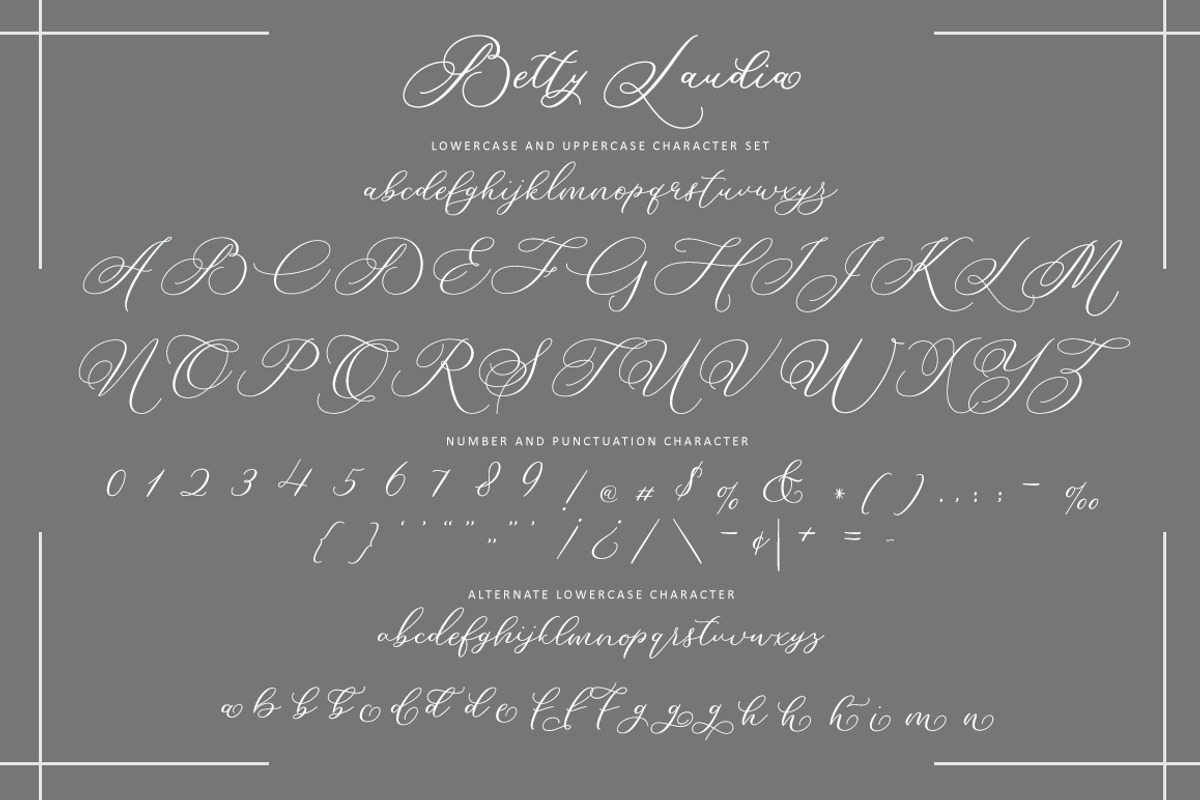 Betty Laudia
LOWERCASE AND UPPERCASE CHARACTER SET
abcdefghijklmnopqrstuvwxyz
ABCDEFGHIJKLM
NOPQRSTUVWXYZ
NUMBER AND PUNCTUATION CHARACTER
0 1 2 3 4 5 6 7 8 9 ! @ # $ % & * ( ) . , : ; – ‰
{ } ‘ ’ “ ” „ ” ’ ¡ ¿ / \ – ¢ | + = -
ALTERNATE LOWERCASE CHARACTER
abcdefghijklmnopqrstuvwxyz
a b b b c d d d e f f f g g g h h h i m n